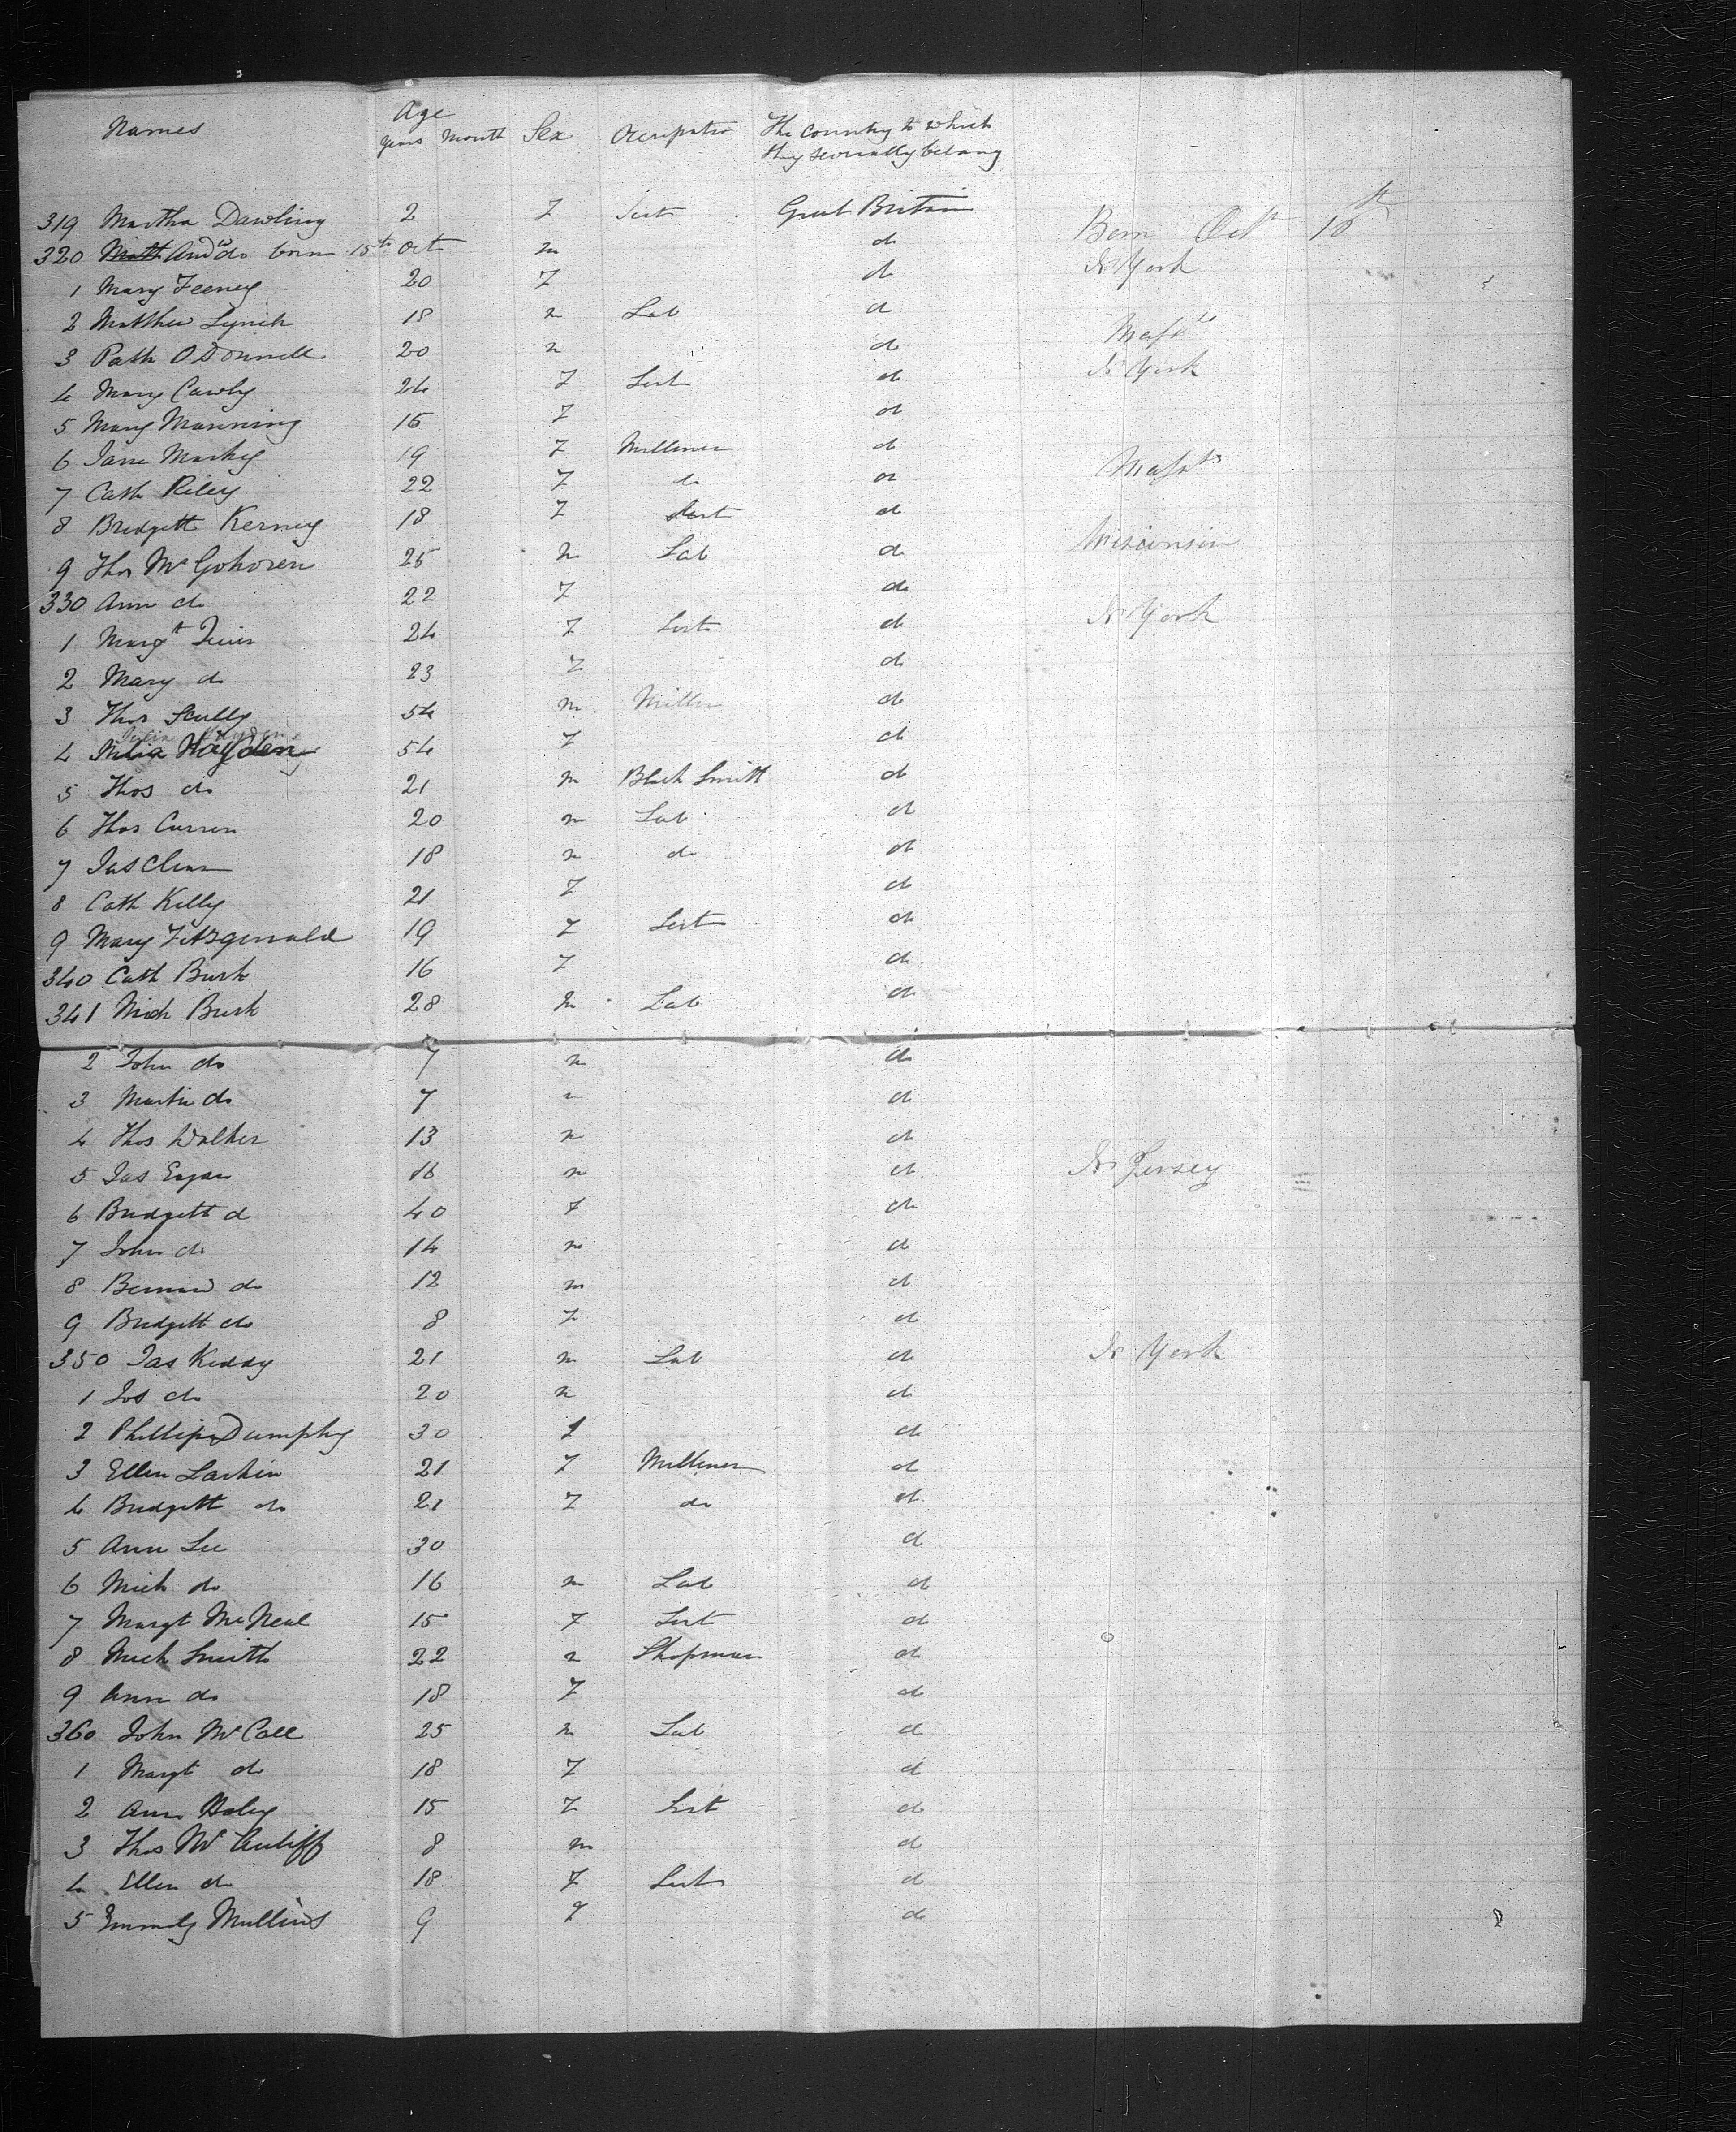 Names Age years month Sex Occupatio The country to which they severally belong
319 Martha Dawling 2 F Great Britain
320 And do born 15th Oct m do Born Oct 10
1 Mary Feeney 20 F do N York
2 Matthew Lynch 18 m Lab do
3 Patk O Donnell 20 m do Masts
4 Mary Cawly 24 F do N York
5 Mary Manning 16 F do
6 Jane Markey 19 F Milliner do
7 Cath Riley 22 F do do Masts
8 Bridgett Kerney 18 F do
9 Thos Mc Gohoren 25 m Lab do Wisconsin
330 Ann do 22 F do
1 Margt 24 F do N York
2 Mary do 23 F do
3 Thos Scully 54 m Miller do
4 Julia Hayden 54 F do
5 Thos do 21 m Black Smith do
6 Thos Curren 20 m Lab do
7 Jas 18 m do do
8 Cath Kelly 21 F do
9 Mary Fitzgerald 19 F do
340 Cath Burk 16 F do
341 Mich Burk 28 m Lab do
2 John do 7 m do
3 Martin do 7 m do
4 Thos Walker 13 m do
5 Jas Egan 16 m do N Jersey
6 Bridgett d 40 F do
7 John do 14 m do
8 Bernard do 12 m do
9 Bridgett do 8 F do
350 Jas Kiddy 21 m Lab do N York
1 Jos do 20 m do
2 Phillip Dumphy 30 do
3 Ellen Larkin 21 F Milliner do
4 Bridgett do 21 F do do
5 Ann Lee 30 do
6 Mich do 16 m Lab do
7 Margt Mc Neal 15 F do
8 Mich Smith 22 m Shopman do
9 Ann do 18 F do
360 John Mc Call 25 m Lab do
1 Margt do 18 F do
2 Ann Haley 15 F do
3 Thos Mc Auliff 8 m do
4 Ellen do 18 F do
5 Mullins 9 F do